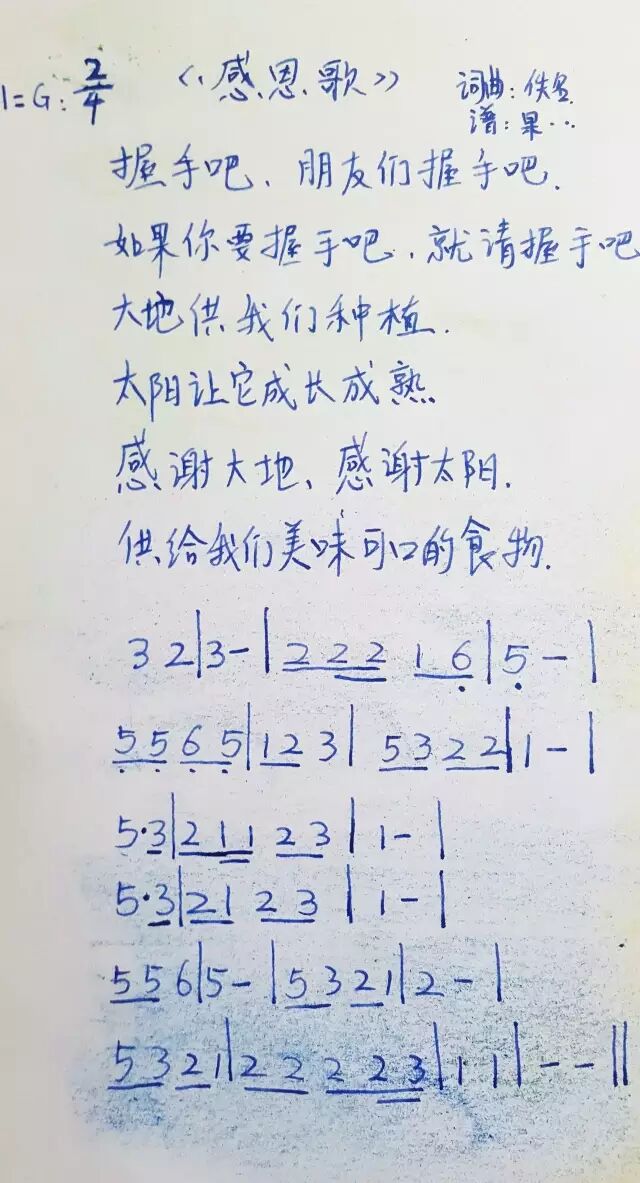 1=G: 2/4 《感恩歌》 词曲:佚名
谱:果··
握手吧、朋友们握手吧.
如果你要握手吧.就请握手吧
大地供我们种植.
太阳让它成长成熟
感谢大地、感谢太阳.
供给我们美味可口的食物.
3 2|3-|2 2 2 1 6|5-|
5 5 6 5|1 2 3|5 3 2 2|1-|
5·3|2 1 1 2 3|1-|
5·3|2 1 2 3|1-|
5 5 6|5-|5 3 2 1|2-|
5 3 2 1|2 2 2 2 3|1 1|--‖